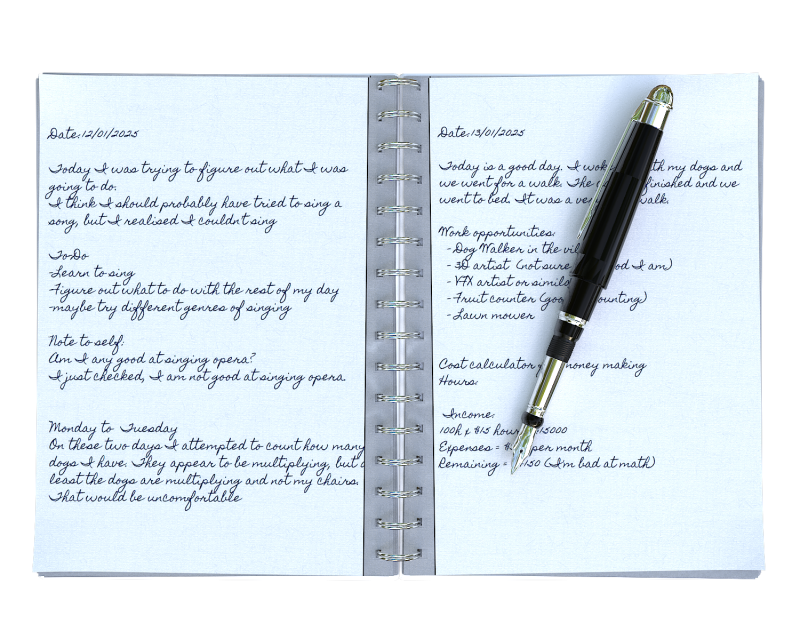 Date:12/01/2025
Today I was trying to figure out what I was
going to do.
I think I should probably have tried to sing a
song, but I realised I couldnt sing
ToDo
-Learn to sing
-Figure out what to do with the rest of my day
-maybe try different genres of singing
Note to self:
Am I any good at singing opera?
I just checked, I am not good at singing opera.
Monday to Tuesday
On these two days I attempted to count how many
dogs I have. They appear to be multiplying, but
least the dogs are multiplying and not my chairs.
That would be uncomfortable
Date:13/01/2025
Today is a good day. I my dogs and
we went for a walk. The finished and we
went to bed. It was a walk.
Work opportunities:
-Dog Walker in the
- 3D artist (not sure I am)
- VFX artist or
-Fruit counter
-Lawn mower
Cost calculator money making
Hours:
Income:
100h x $15
Expenses = per month
Remaining = (I'm bad at math)